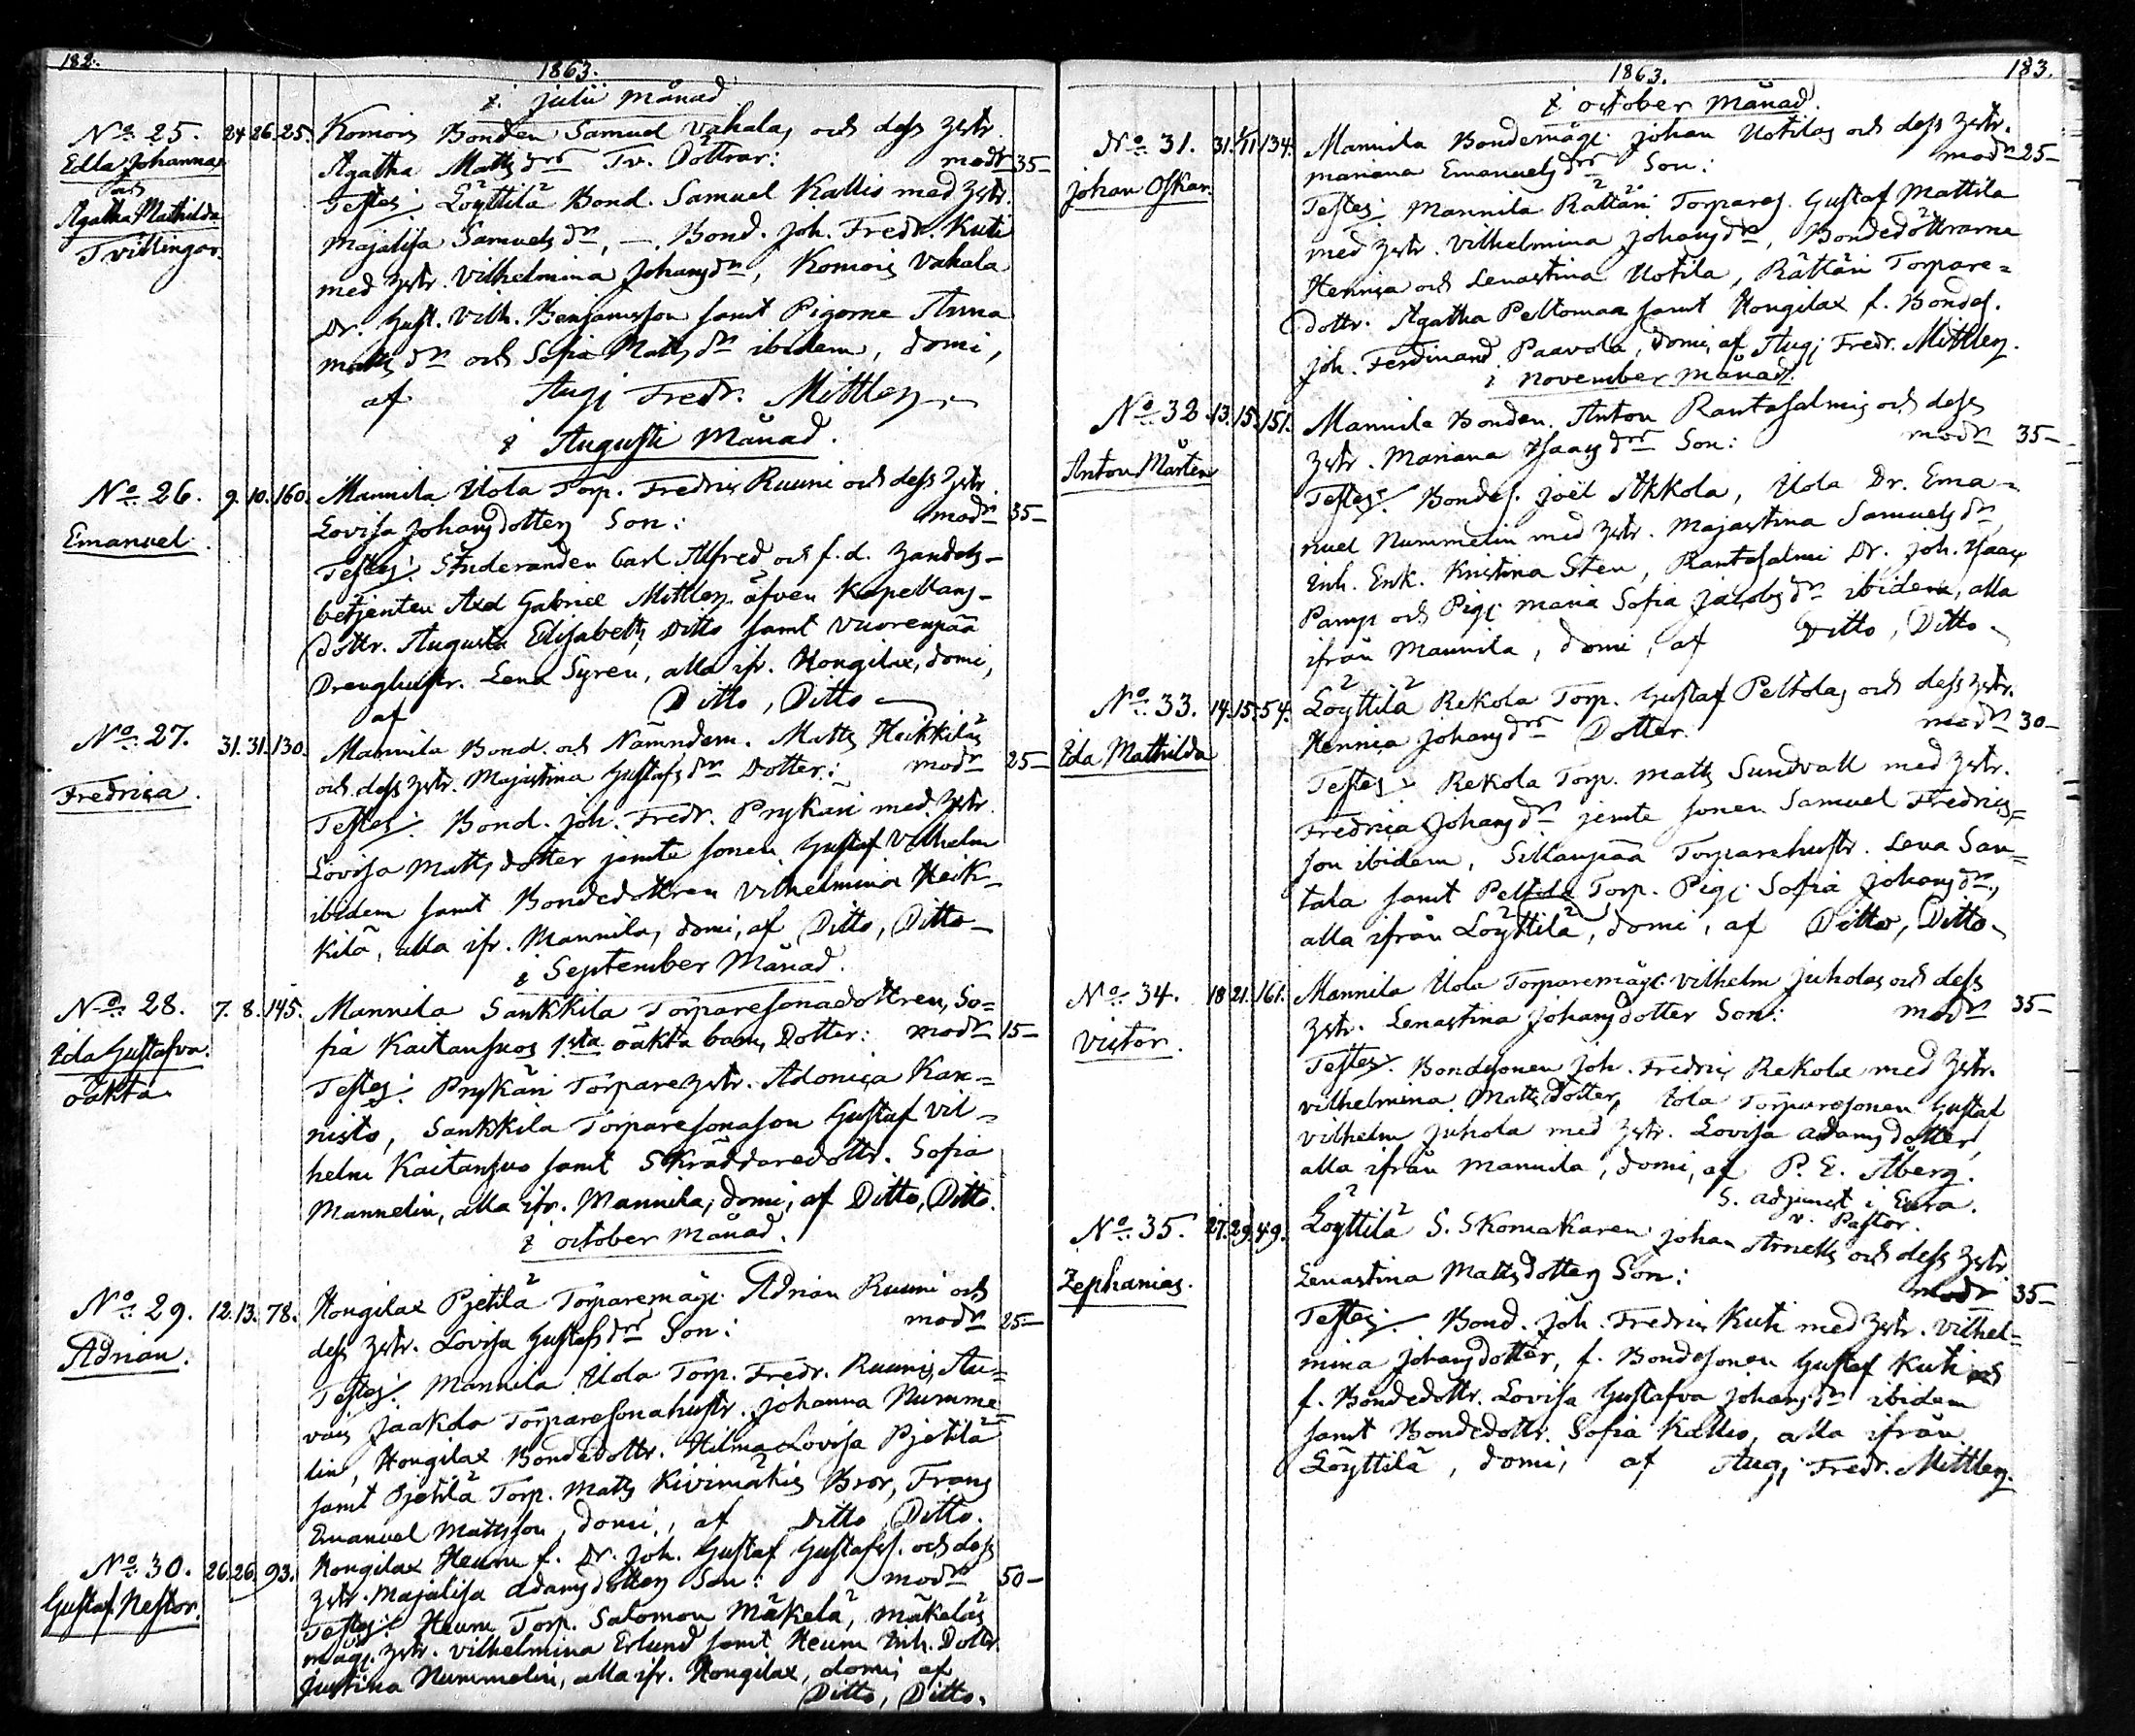 182.
1863.
i julii månad.
No 25. 24. 26. 25. Komois Bonden Samuel Vahalas och dess hstr.
Edla Johanna Agatha Matts dr Tv. Döttrar: modr 35—
och Testes: Löyttilä Bond. Samuel Kallio med hstr.
Agatha Mathilda Majalisa Samuels dr, —, Bond. Joh. Fredr. Kuti
Tvillingar. med hstr. Vilhelmina Johans dr, Komois Vahala
Dr. Gust. Vilh. Benjamsson samt Pigorne Anna
Matts dr och Sofia Matts dr ibidem, domi,
af Aug: Fredr. Mittler
i Augusti Månad.
No 26. 9. 10. 160. Mannila Uola Torp. Fredric Ruuni och dess hstr.
Lovisa Johansdotters Son: modr 35—
Emanuel. Testes: Studeranden Carl Alfred och f.d. Handels-
betjenten Axel Gabriel Mittler äfven Kapellans-
dottr. Augusta Elisabeth Ditto samt Vuorenpää
Drenghustr. Lena Syren, alla ifr. Hongilax, domi,
af Ditto, Ditto
No 27. 31. 31. 130. Mannila Bond. och Nämndem. Matts Heikkiläs
och dess hstr. Majastina Gustafs dr Dotter: modr 25—
Fredrica. Testes: Bond. Joh. Fredr. Prykäri med hstr.
Lovisa Mattsdotter jemte sonen Gustaf Vilhelm
ibidem samt Bondedottren Vilhelmina Heik-
kilä, alla ifr. Mannila, domi, af Ditto, Ditto—
i September Månad.
No 28. 7. 8. 145. Mannila Sankkila Torparesonadottren, So=
fia Kaitansuos 1sta oäkta barn, Dotter: modr 15—
Ida Gustafva. Testes: Prykäri Torparehstr. Adonica Kan=
oäkta nisto, Sankkila Torparesonason Gustaf Vil=
helm Kaitansuo samt Skräddaredottr. Sofia
Mannelin, alla ifr. Mannila, domi, af Ditto, Ditto.
i october månad.
No 29. 12. 13. 78. Hongilax Pjetilä Torparemåg. Adrian Ruuni och
dess hstr. Lovisa Gustafs dr Son: modr 25—
Adrian. Testes: Mannila Uola Torp. Fredr. Ruuni, Au=
vais Jaakola Torparesonahustr. Johanna Numme=
lin, Hongilax Bondedottr. Hilma Lovisa Pjetilä
samt Pjetilä Torp. Matts Kivimäkis Bror, Frans
Emanuel Mattsson, domi, af Ditto, Ditto.
No 30. 26. 26. 93. Hongilax Heurn f. Dr. Joh. Gustaf Gustafss. och dess
hstr. Majalisa Adamsdotters Son: modr 50—
Gustaf Nestor. Testes: Heurn Torp. Salomon Mäkelä, Mäkeläs
måg. hstr. Vilhelmina Erlund samt Heurn Inh. Dottr.
Justina Nummelin, alla ifr. Hongilax, domi, af
Ditto, Ditto.
1863. 183.
i october månad.
No 31. 31. 1/11 134. Mannila Bondemåg. Johan Uotilas och dess hstr.
Johan Oskar. Mariana Emanuels dr Son: modr 25—
Testes: Mannila Rättäri Torpares. Gustaf Mattila
med hstr. Vilhelmina Johans dr, Bondedöttrarne
Henrica och Lenastina Uotila, Rättäri Torpare=
dottr. Agatha Peltomaa samt Hongilax f. Bondes.
Joh. Ferdinand Paavola, domi, af Aug: Fredr. Mittler.
i november månad.
No 32. 13. 15. 151. Mannila Bonden Anton Rantasalmis och dess
Anton Mårten hstr. Mariana Isaacs dr Son: modr 35—
Testes: Bondes. Joël Akkola, Uola Dr. Ema=
nuel Nummelin med hstr. Majastina Samuels dr,
Inh. Enk. Kristina Sten, Rantasalmi Dr. Joh. Isaac
Pamp och Pig: Maria Sofia Jacobs dr ibidem, alla
ifrån Mannila, domi, af Ditto, Ditto
No 33. 14. 15. 54. Löyttilä Rekola Torp. Gustaf Peltolas och dess hstr.
Ida Mathilda Henrica Johans dr Dotter. modr 30—
Testes: Rekola Torp. Matts Sundvall med hstr.
Fredrica Johans dr jemte sonen Samuel Fredrics=
son ibidem, Sillanpää Torparehustr. Lena San=
tala samt Peltola Torp. Pig: Sofia Johans dr,
alla ifrån Löyttilä, domi, af Ditto, Ditto
No 34. 18 21. 161. Mannila Uola Torparemåg. Vilhelm Juholas och dess
hstr. Lenastina Johansdotter Son: modr 35—
Victor. Testes: Bondesonen Joh. Fredric Rekola med hstr.
Vilhelmina Mattsdotter, Uola Torparesonen Gustaf
Vilhelm Juhola med hstr. Lovisa Adamsdotter,
alla ifrån Mannila, domi, af P. E. Åberg.
S. adjunct i Eura.
v. Pastor.
No 35. 27. 29. 49. Löyttilä S. Skomakaren Johan Arnells och dess hstr.
Zephanias. Lenastina Mattsdotters Son: modr 35—
Testes: Bond. Joh. Fredric Kuti med hstr. Vilhel=
mina Johansdotter, f. Bondesonen Gustaf Kuti och
f. Bondedottr. Lovisa Gustafva Johans dr ibidem
samt Bondedottr. Sofia Kallio, alla ifrån
Löyttilä, domi, af Aug: Fredr. Mittler.